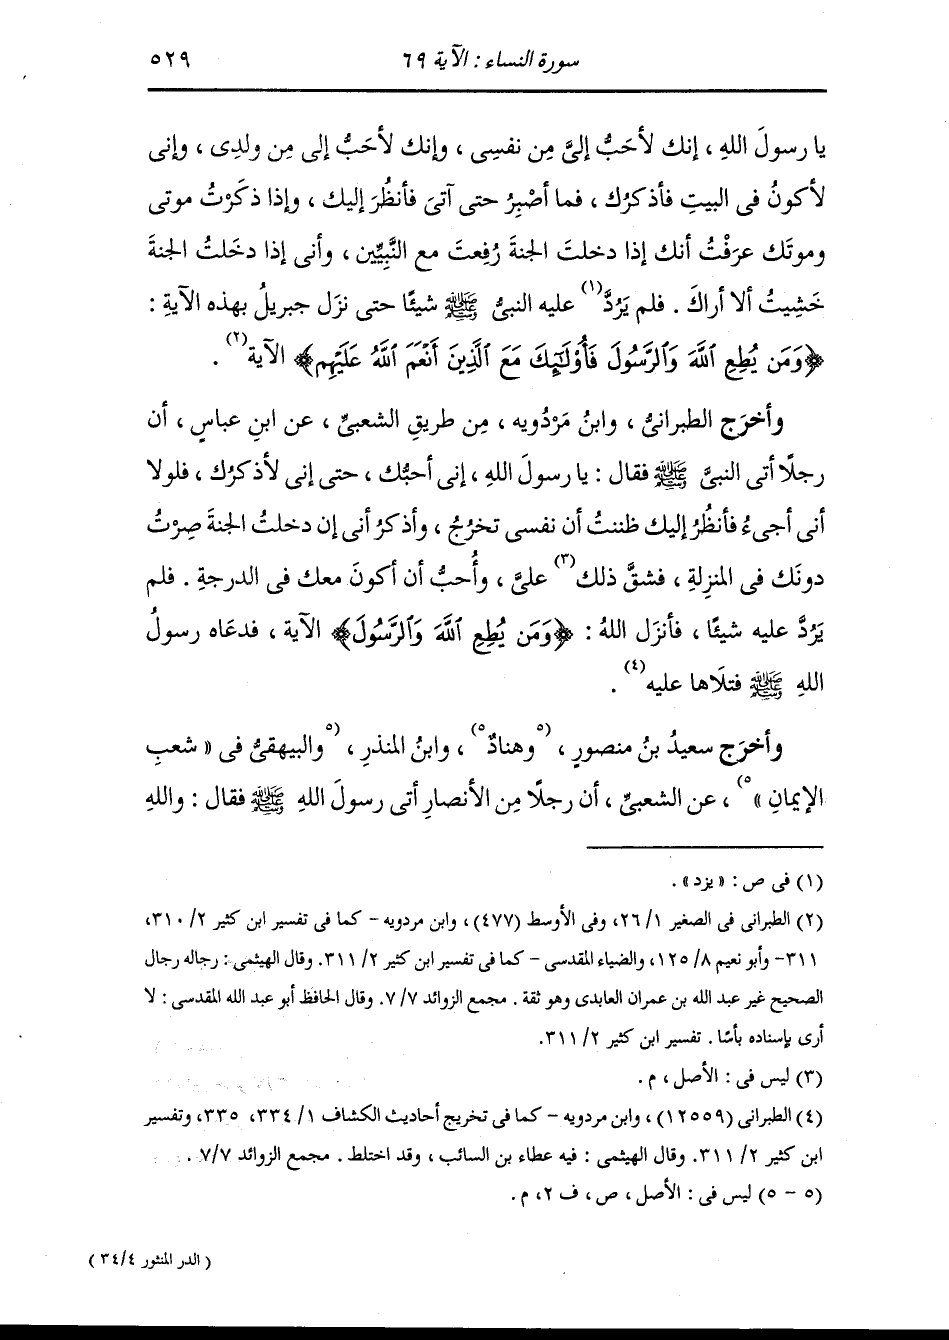 سورة النساء : الآية ٦٩ ٥٢٩
يا رسولَ اللهِ ، إنك لأحَبُّ إلىَّ مِن نفسِى ، وإنك لأحَبُّ إلى مِن ولدِى ، وإنى
لأكونُ فى البيتِ فأذكرُك ، فما أصْبِرُ حتى آتىَ فأنظُرَ إليك ، وإذا ذكَرْتُ موتى
وموتَك عرَفْتُ أنك إذا دخلتَ الجنةَ رُفِعتَ مع النَّبِيِّين ، وأنى إذا دخَلتُ الجنةَ
خَشِيتُ ألا أراكَ . فلم يَرُدَّ(١) عليه النبىُّ ﷺ شيئًا حتى نزَل جبريلُ بهذه الآيةِ :
﴿وَمَن يُطِعِ ٱللَّهَ وَٱلرَّسُولَ فَأُوْلَٰٓئِكَ مَعَ ٱلَّذِينَ أَنْعَمَ ٱللَّهُ عَلَيْهِم﴾ الآية(٢) .
وأخرَج الطبرانىُّ ، وابنُ مَرْدُويه ، مِن طريقِ الشعبىِّ ، عن ابنِ عباسٍ ، أن
رجلًا أتى النبىَّ ﷺ فقال : يا رسولَ اللهِ ، إنى أحبُّك ، حتى إنى لأذكرُك ، فلولا
أنى أجىءُ فأنظُرُ إليك ظننتُ أن نفسى تخرُجُ ، وأذكرُ أنى إن دخلتُ الجنةَ صِرْتُ
دونَك فى المنزِلةِ ، فشقَّ ذلك(٣) علىَّ ، وأُحبُّ أن أكونَ معك فى الدرجةِ . فلم
يَرُدَّ عليه شيئًا ، فأنزَل اللهُ : ﴿وَمَن يُطِعِ ٱللَّهَ وَٱلرَّسُولَ﴾ الآية ، فدعَاه رسولُ
اللهِ ﷺ فتلَاها عليه(٤) .
وأخرَج سعيدُ بنُ منصورٍ ، (٥وهنادٌ٥) ، وابنُ المنذرِ ، (٥والبيهقىُّ فى « شعبِ
الإيمانِ »٥) ، عن الشعبىِّ ، أن رجلًا مِن الأنصارِ أتى رسولَ اللهِ ﷺ فقال : واللهِ
(١) فى ص : « يزد » .
(٢) الطبرانى فى الصغير ١/ ٢٦، وفى الأوسط (٤٧٧) ، وابن مردويه – كما فى تفسير ابن كثير ٢/ ٣١٠،
٣١١- وأبو نعيم ٨/ ١٢٥، والضياء المقدسى – كما فى تفسير ابن كثير ٢/ ٣١١. وقال الهيثمى : رجاله رجال
الصحيح غير عبد الله بن عمران العابدى وهو ثقة . مجمع الزوائد ٧/ ٧. وقال الحافظ أبو عبد الله المقدسى : لا
أرى بإسناده بأسًا . تفسير ابن كثير ٢/ ٣١١.
(٣) ليس فى : الأصل ، م .
(٤) الطبرانى (١٢٥٥٩) ، وابن مردويه – كما فى تخريج أحاديث الكشاف ١/ ٣٣٤، ٣٣٥، وتفسير
ابن كثير ٢/ ٣١١. وقال الهيثمى : فيه عطاء بن السائب ، وقد اختلط . مجمع الزوائد ٧/٧ .
(٥ – ٥) ليس فى : الأصل ، ص ، ف ٢، م .
( الدر المنثور ٣٤/٤ )